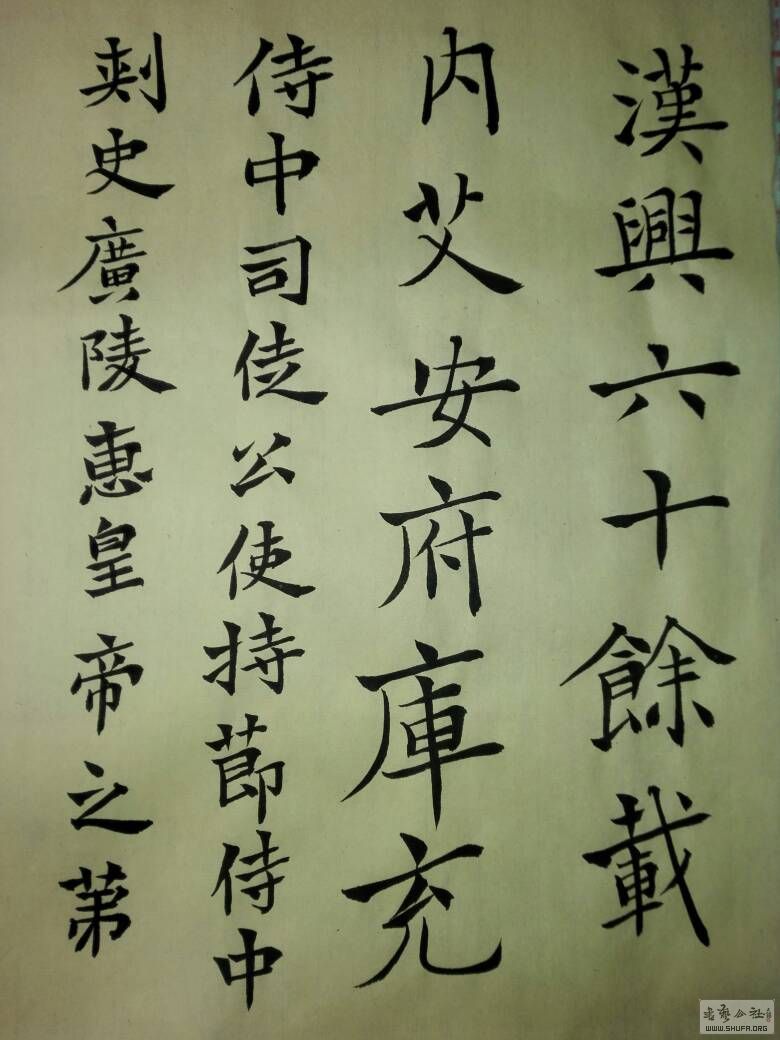 漢興六十餘載
内艾安府庫充
侍中司徒公使持節侍中
刺史廣陵惠皇帝之第
WWW.SHUFA.ORG